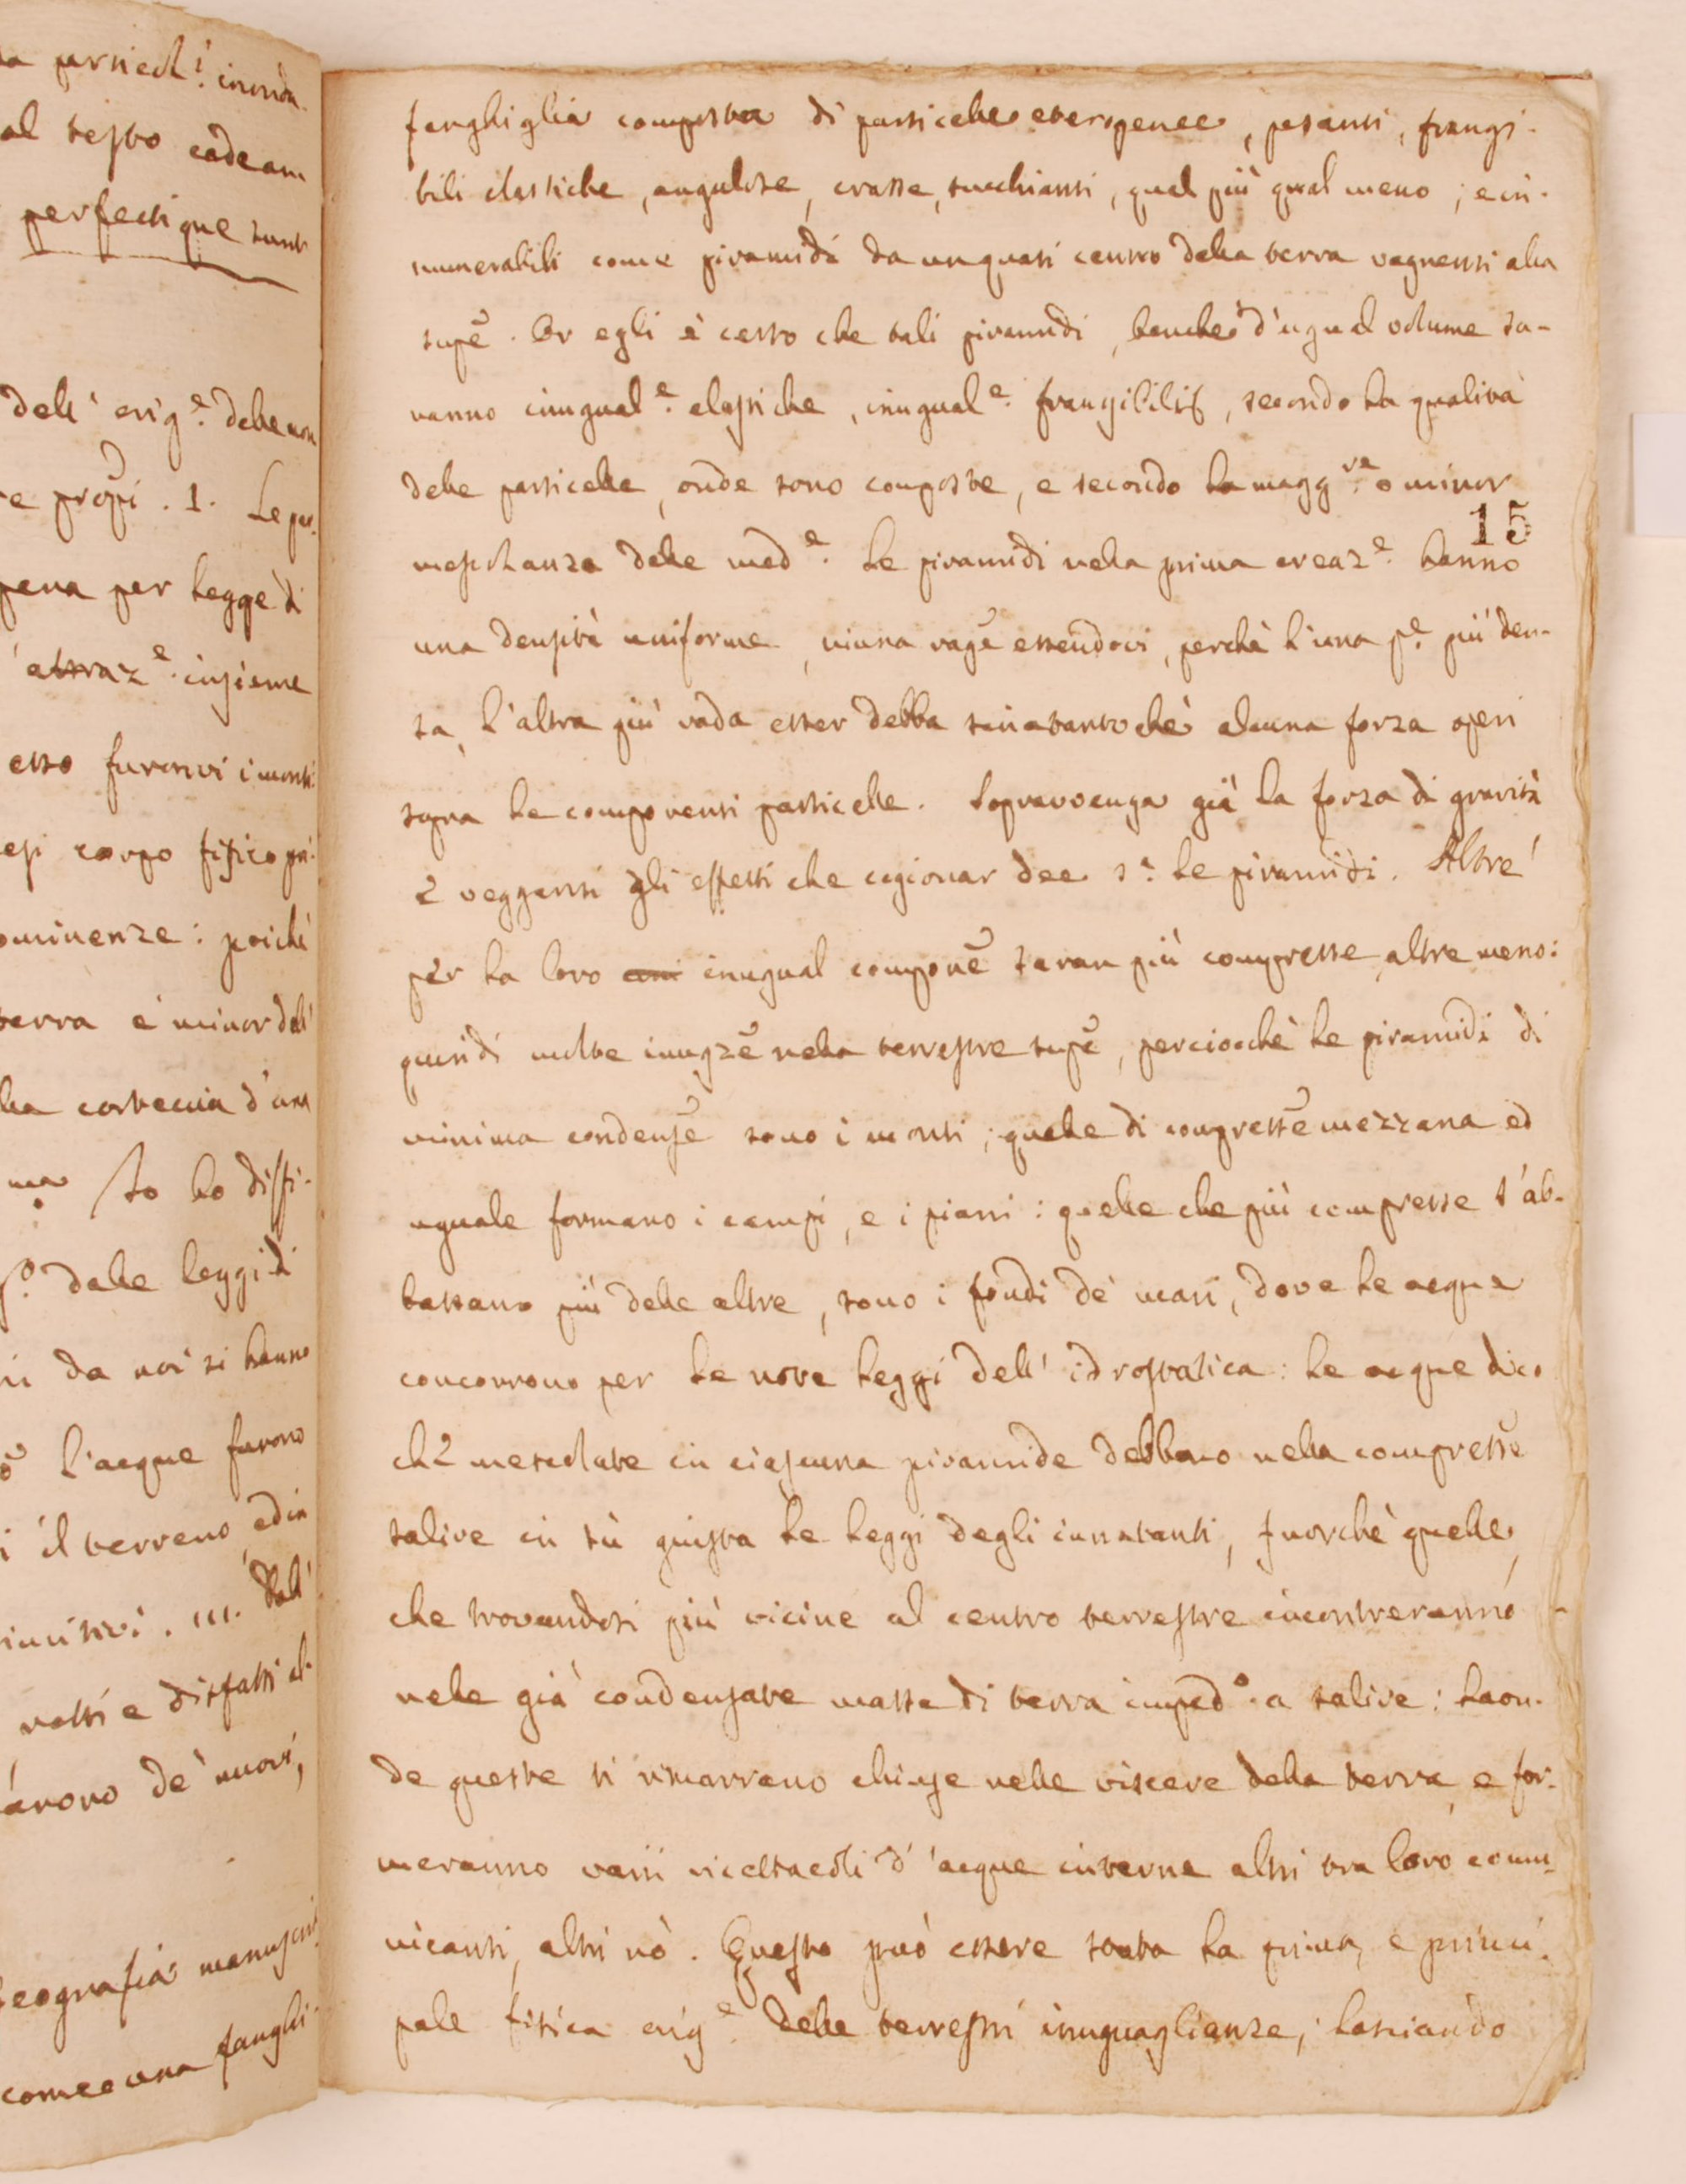 a particel? inonda-
al testo cadeam
perfectique sunt
dell' orig.e delle non
e propī . 1. Le par-
pena per legge di
attraz.e insieme
esso furonvi i monti
esi corpo fisico pri-
ominenze : poichè
terra è minor dell'
la corteccia d'una
ma Io ho diffi-
dalle leggi di
ni da noi si hanno
l'acque furono
i il terreno, ed in
imitivi . III. Dall'
rotti e disfatti al-
arono de' nuovi,
Geografia manuscri-
come una fanghi-
fanghiglia composta di particelle eterogenee, pesanti, frangi-
bili elastiche, angulose, crasse, succhianti, qual più qual meno ; e in-
numerabili come piramidi da un quasi centro della terra vegnenti alla
supē . Or egli è certo che tali piramidi, benchè d'ugual volume sa-
ranno inugual.e elastiche, inugual.e frangibili, secondo la qualità
delle particelle, onde sono composte, e secondo la magg.re o minor
15
mescolanza delle med.e Le piramidi nella prima creaz.e hanno
una densità uniforme, niuna ragē essendovi, perchè l'una p.e più den-
sa, l'altra più rada esser debba sinatantochè alcuna forza operi
sopra le componenti particelle. Sopravvenga già la forza di gravità
e veggansi gli effetti che cagionar dee s.a le piramidi. Altre
per la loro inugual componē saran più compresse, altre meno:
quindi molte inugzē nella terrestre supē, perciocchè le piramidi di
minima condensē sono i monti ; quelle di compressē mezzana ed
uguale formano i campi, e i piani : quelle che più compresse s'ab-
bassano più delle altre, sono i fondi de' mari, dove le acque
concorrono per le note leggi dell' idrostatica : le acque dico
che mescolate in ciascuna piramide debbono nella compressē
salire in sù giusta le leggi degli innatanti, fuorchè quelle,
che trovandosi più vicine al centro terrestre incontreranno
nelle già condensate masse di terra imped.o a salire : laon-
de queste si rimarrano chiuse nelle viscere della terra, e for-
meranno varii ricettacoli d'acque interne altri tra loro comu-
nicanti, altri nò. Questa può essere stata la prima, e princi-
pale fisica orig.e delle terrestri inuguaglianze, lasciando